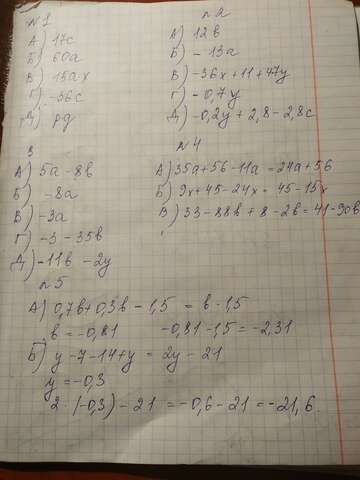 N1
А) 17c
Б) 60a
В) 15ax
Г) -36c
Д) pq
N2
А) 12b
Б) -13a
В) -36x+11+47y
Г) -0,7y
Д) -0,2y+2,8-2,8c
3
А) 5a-8b
Б) -8a
В) -3a
Г) -3-35b
Д) -11b-2y
N4
А) 35a+56-11a=24a+56
Б) 9x+45-24x=45-15x
В) 33-88b+8-2b=41-90b
N5
А) 0,7b+0,3b-1,5=b-1,5
b=-0,81 -0,81-1,5=-2,31
Б) y-7-14+y=2y-21
y=-0,3
2·(-0,3)-21=-0,6-21=-21,6